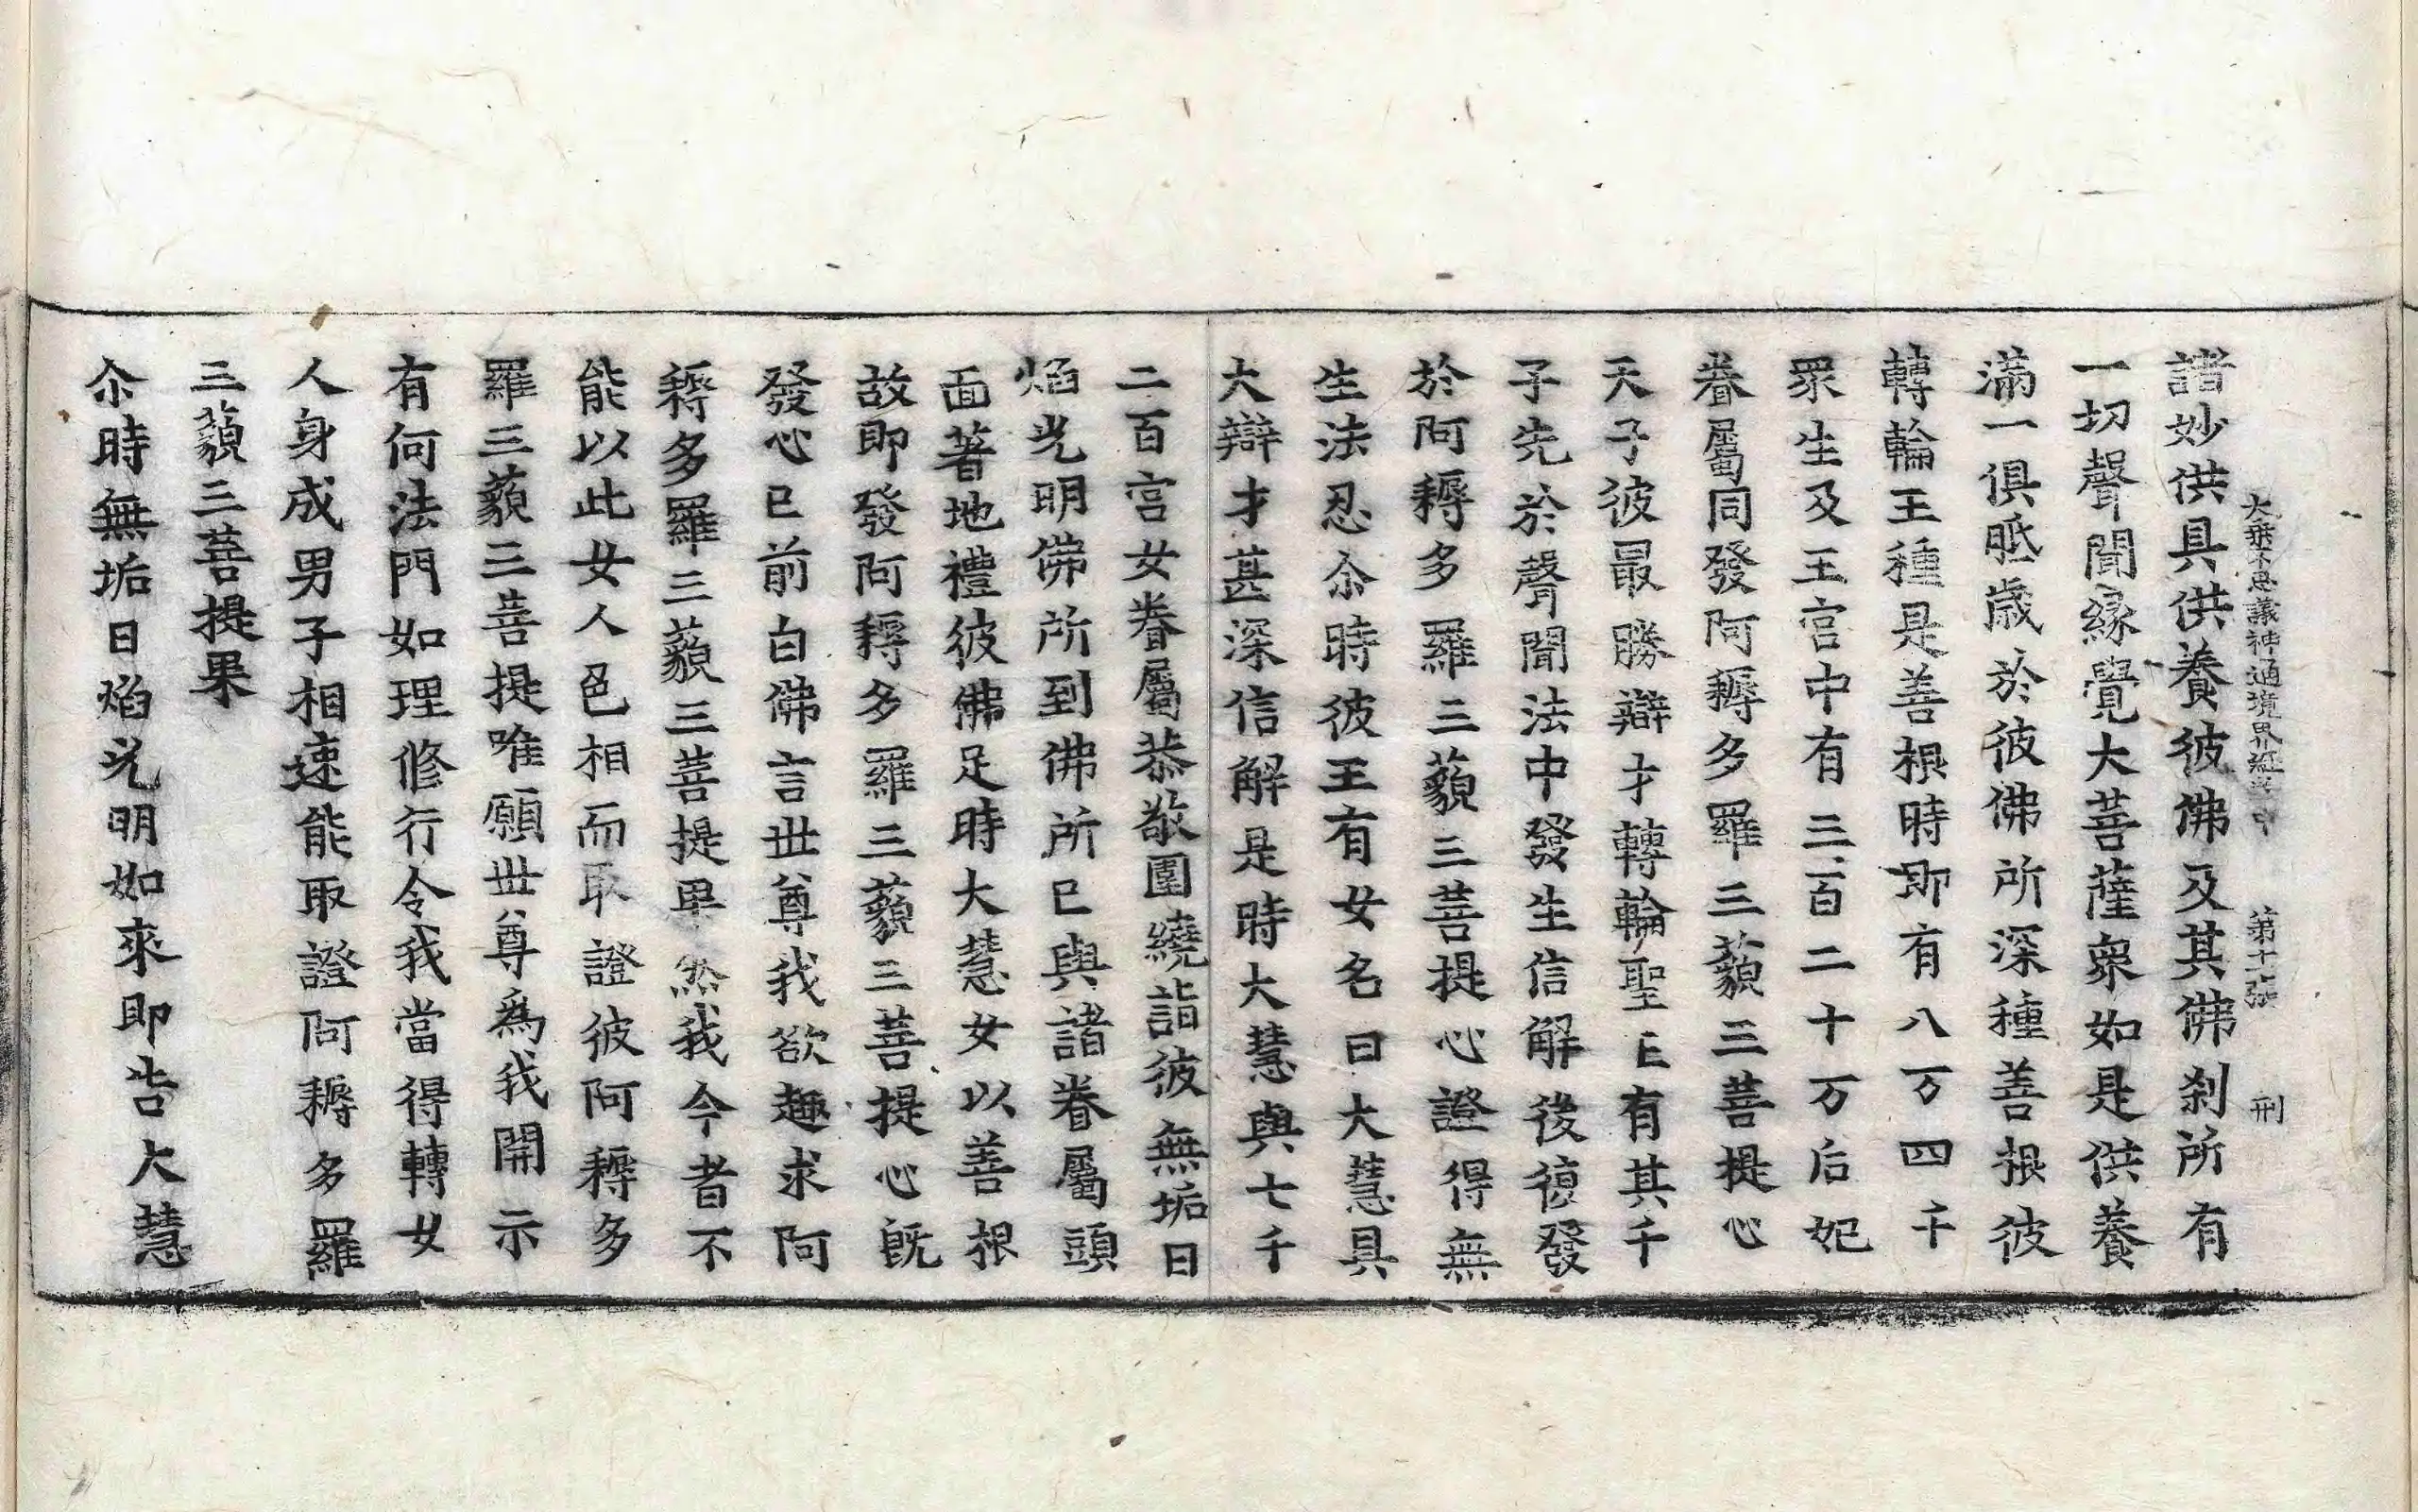 大乘不思議神通境界經卷中 第十張 刑
諸妙供具供養彼佛及其佛刹所有
一切聲聞緣覺大菩薩衆如是供養
滿一俱胝歲於彼佛所深種善根彼
轉輪王種是善根時即有八万四千
眾生及王宮中有三百二十万后妃
眷屬同發阿耨多羅三藐三菩提心
天子彼最勝辯才轉輪聖王有其千
子先於聲聞法中發生信解後復發
於阿耨多羅三藐三菩提心證得無
生法忍尒時彼王有女名曰大慧具
大辯才甚深信解是時大慧與七千
二百宮女眷屬恭敬圍繞詣彼無垢日
焰光明佛所到佛所已與諸眷屬頭
面著地禮彼佛足時大慧女以善根
故即發阿耨多羅三藐三菩提心既
發心已前白佛言世尊我欲趣求阿
耨多羅三藐三菩提果然我今者不
能以此女人色相而取證彼阿耨多
羅三藐三菩提唯願世尊爲我開示
有何法門如理修行令我當得轉女
人身成男子相速能取證阿耨多羅
三藐三菩提果
尒時無垢日焰光明如來即告大慧